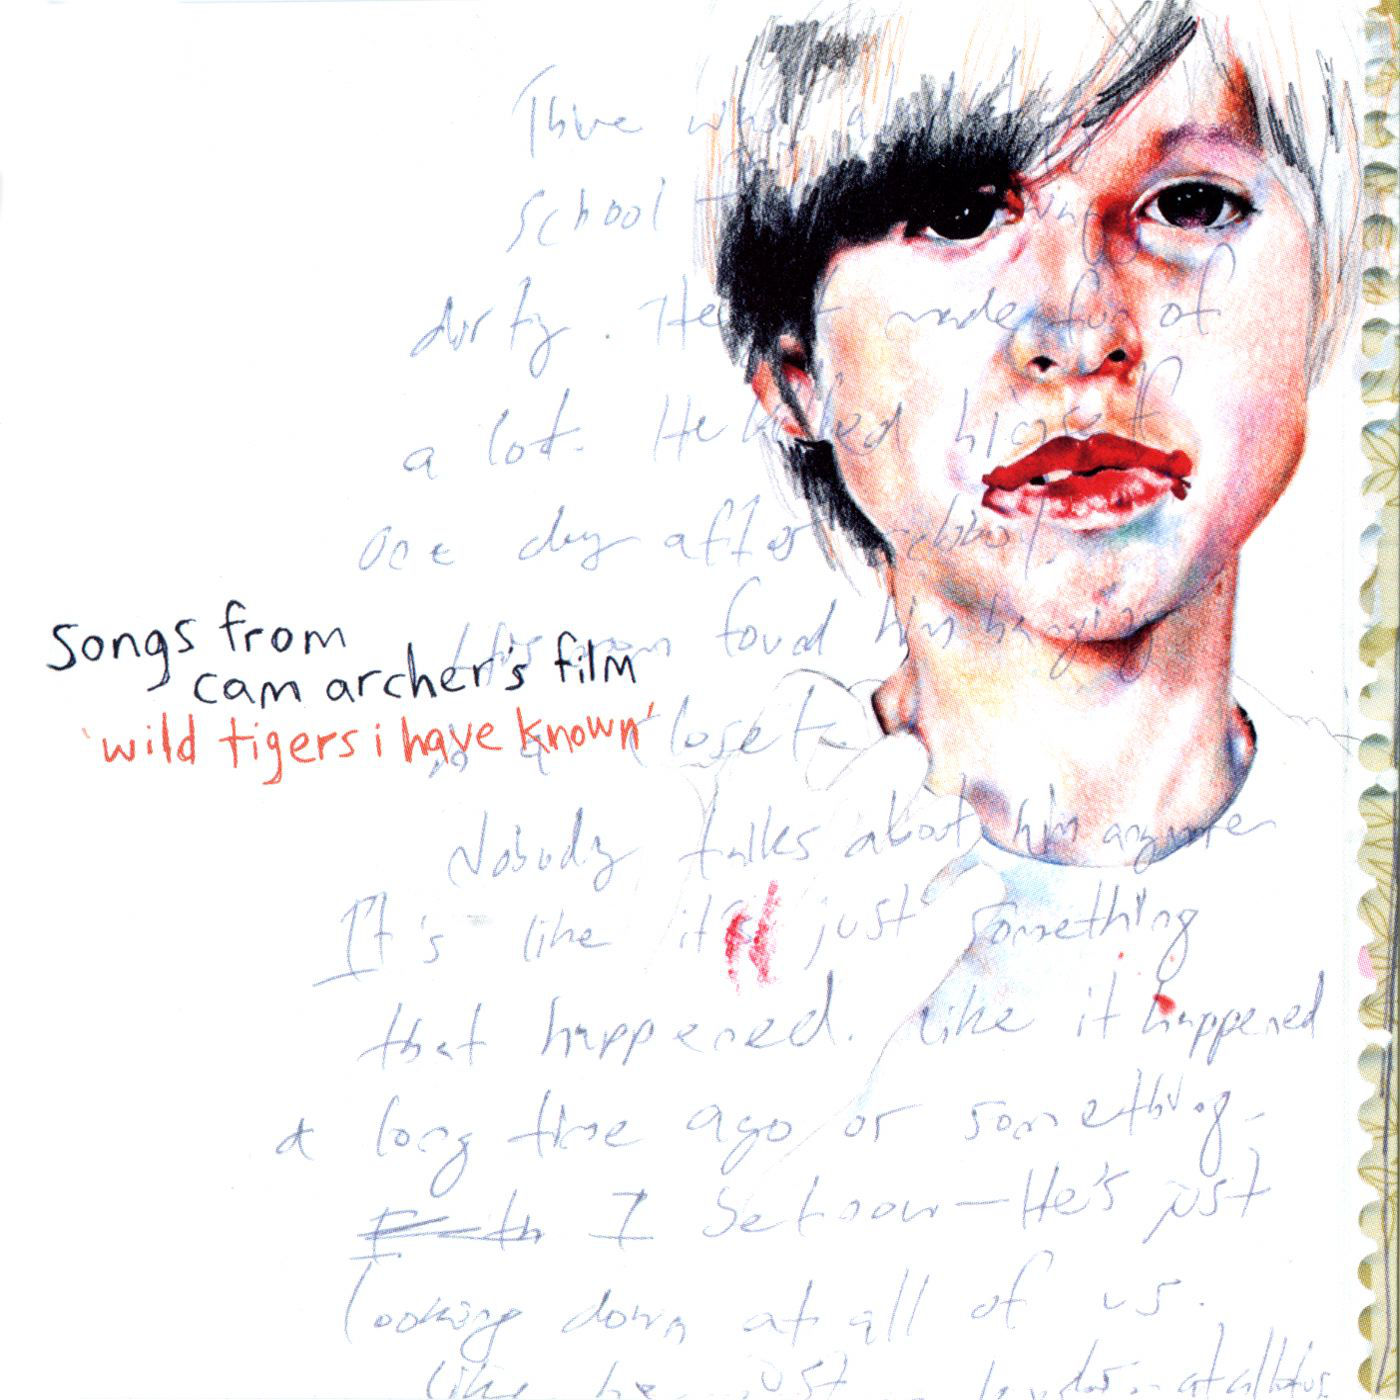 There was a
school
dirty. He made fun of
a lot. He killed himself
one day after school.
His mom found him hanging
songs from
cam archer's film
'wild tigers i have known'
in a closet
Nobody talks about him anymore
It's like it's just something
that happened. Like it happened
a long time ago or something.
I bet now—He's just
looking down at all of us.
like he just